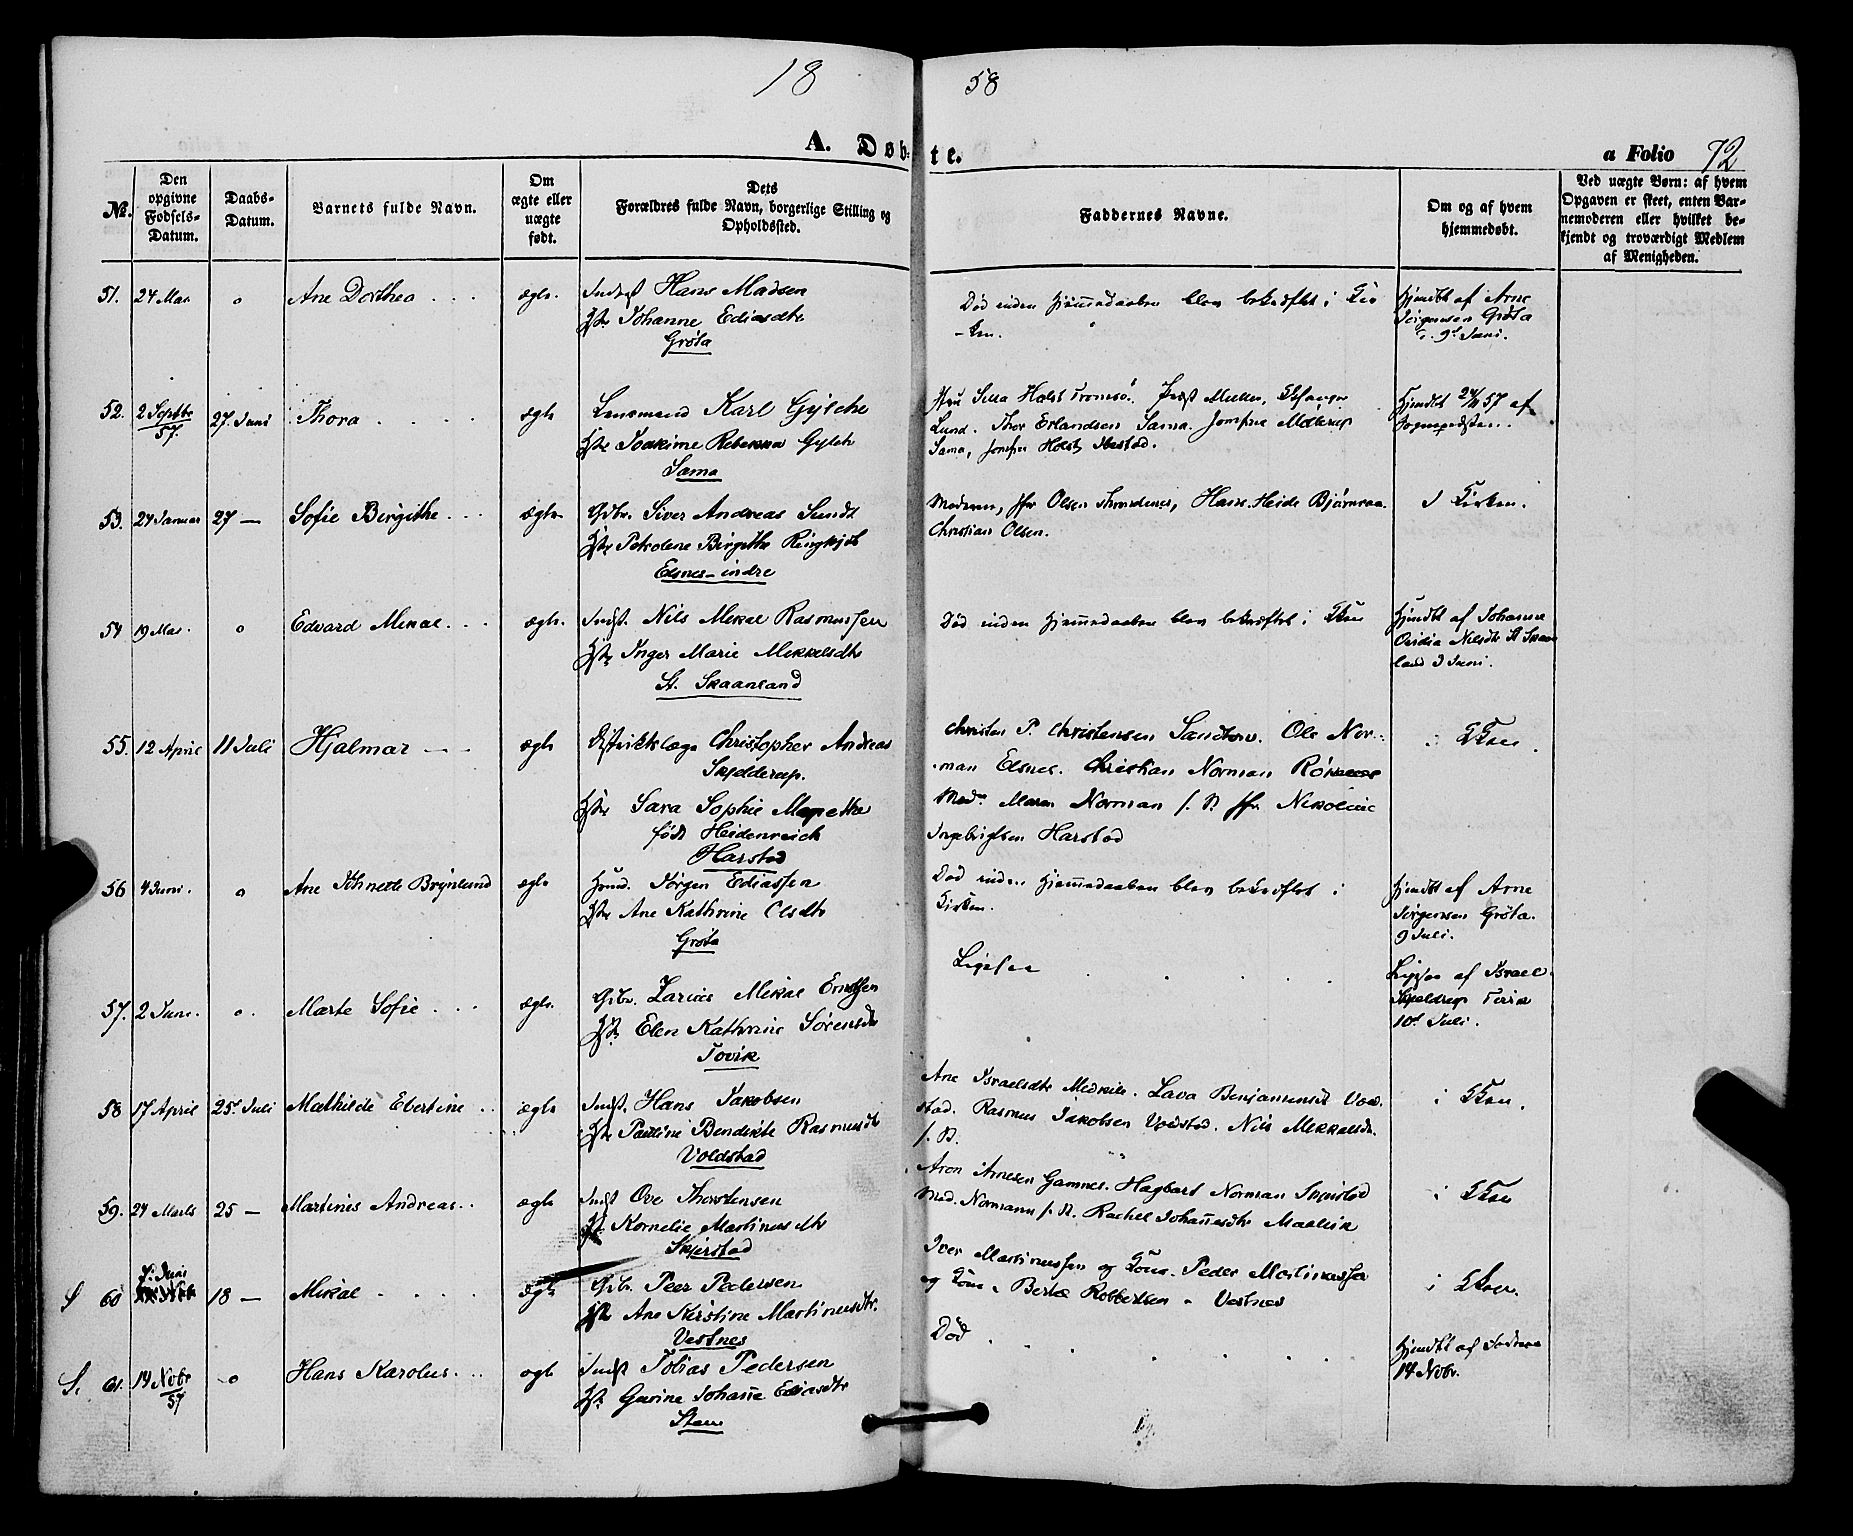 18 58
A. Døbte.
a Folio 72
No.
Den opgivne Fødsels-Datum.
Daabs-Datum.
Barnets fulde Navn.
Om ægte eller uægte født.
Dets Forældres fulde Navn, borgerlige Stilling og Opholdssted.
Faddernes Navne.
Om og af hvem hjemmedøbt.
Ved uægte Børn: af hvem Opgaven er skeet, enten Barnemoderen eller hvilket bekjendt og troværdigt Medlem af Menigheden.
51. 24 Mai o Ane Dorthea ægte. Indst Hans Madsen
Hst. Johanne Ediasdtr
Grøta
Død inden Hjemmedaaben blev bekræftet i Kir
-ken.
Hjmdbt af Arne
Jørgensen Grøta
9d Juni.
52. 2 Septbr 57. 27. Juni Thora ægte Lensmand Karl Gylche
Hst. Joakime Rebekka Gylch
Sama
Fru Holst Tromsø. Müller,
Lund. Thor Erlandsen Sama. Jomfrue
Sama, Jomfru Holst Ibestad.
Hjmdbt 57 af
Sognepresten.
53. 24 Januar 27 — Sofie Birgithe ægte Gbr. Siver Andreas Sundt
Hst. Petroline Birgithe
Elsnes-indre
Moderen, Jfr Olsen Throndenes, Hans Heide Bjørnraa.
Christian Olsen.
I Kirken.
54 19 Mai. o Edvard Mikal ægte. Indst. Nils Mikal Rasmussen
Hst. Inger Marie Mikkelsdtr
St. Skaanland
Død inden Hjemmedaaben blev bekræftet i Kken
Hjmdbt af Johanna
Nilsdtr St Skaan
land 9 Juni.
55. 12 April 11 Juli Hjalmar ægte Distriktslæge Christopher Andreas
Skjelderup.
Hst. Sara Sophie
født Heidenreich
Harstad
Christen P. Christensen Sandtorv. Ole Nor-
man Elsnes. Christian Norman
Mad. Maren Norman s. St. Jfr. Nikoline
Ingebrigtsen Harstad
i Kken.
56 4 Juni. o Ane Johnette Brynlund ægte Jørgen Ediassen
Hst. Ane Kathrine Olsdtr
Grøta
Død inden Hjemmedaaben blev bekræftet i
Kirken.
Hjmdbt af Arne
Jørgensen Grøta.
9 Juli.
57. 2 Juni. o. Marte Sofie ægte. Gbr. Zarias Mikal Erntsen
Hst. Elen Kathrine Sørensdtr
Tovik
Ligesaa
Ligesaa af Israel
Skjeldrup
10d Juli.
58 17 April 25d Juli Mathilde Ebertine ægte Indst. Hans Jakobsen
Hst. Pauline Bendikte Rasmusdtr
Voldstad
Ane Israelsdtr Medkile. Lava Benjaminsdtr Vold-
stad. Rasmus Jakobsen Voldstad. Nils
s. St.
i Kken.
59. 24 Marts 25 — Martinis Andreas ægte Indst Ove Thorstensen
Hst. Kornelie Martinusdtr
Skjerstad
Aron Arnesen Gamnes. Hagbart Norman
Mad. Normann s. St. Rachel Johannesdtr
i Kken
S 60 18 — Mikal ægte Gbr. Peer Pedersen
Hst. Ane Kirstine Martinusdtr.
Vestnes
Iver Martinussen og Kona. Peder Martinussen
og Kona. Robbertsen Vestnes
i Kken.
S. 61. 14 Nobr 57 o Hans Karolus ægte Indst Tobias Pedersen
Hst. Gurine Johanne Ediasdtr
Død
Hjmdbt af
14 Nobr.